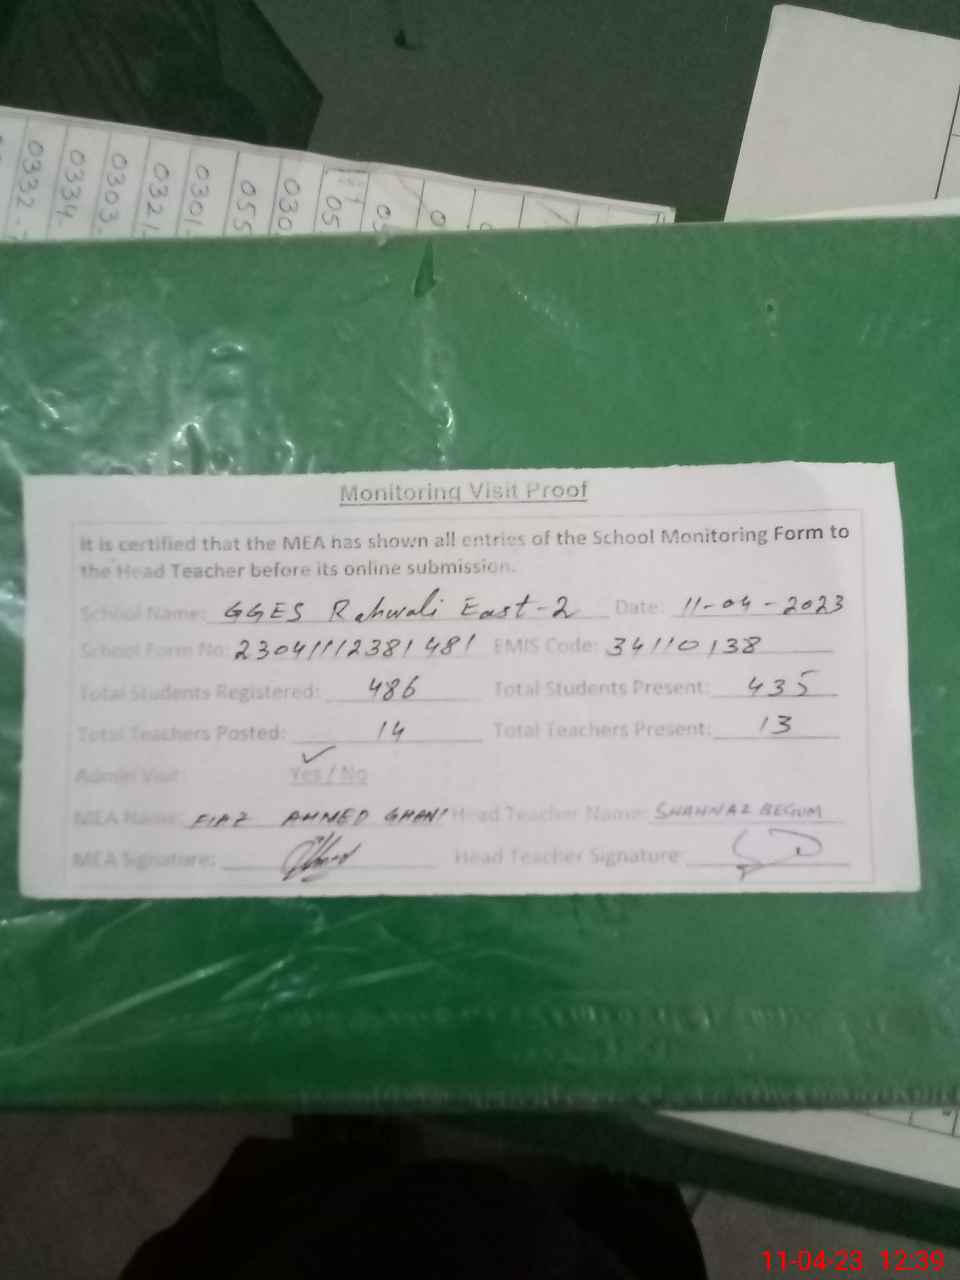 0332-
0334-
0303-
0321-
0301-
055
030
05
Monitoring Visit Proof
It is certified that the MEA has shown all entries of the School Monitoring Form to
the Head Teacher before its online submission.
School Name: GGES Rahwali East-2 Date: 11-04-2023
School Form No: 23041112381481 EMIS Code: 34110138
Total Students Registered: 486 Total Students Present: 435
Total Teachers Posted: 14 Total Teachers Present: 13
Admin Visit: ✓ Yes / No
MEA Name: FIAZ AHMED GHANI Head Teacher Name: SHAHNAZ BEGUM
MEA Signature: Head Teacher Signature:
11-04-23 12:39